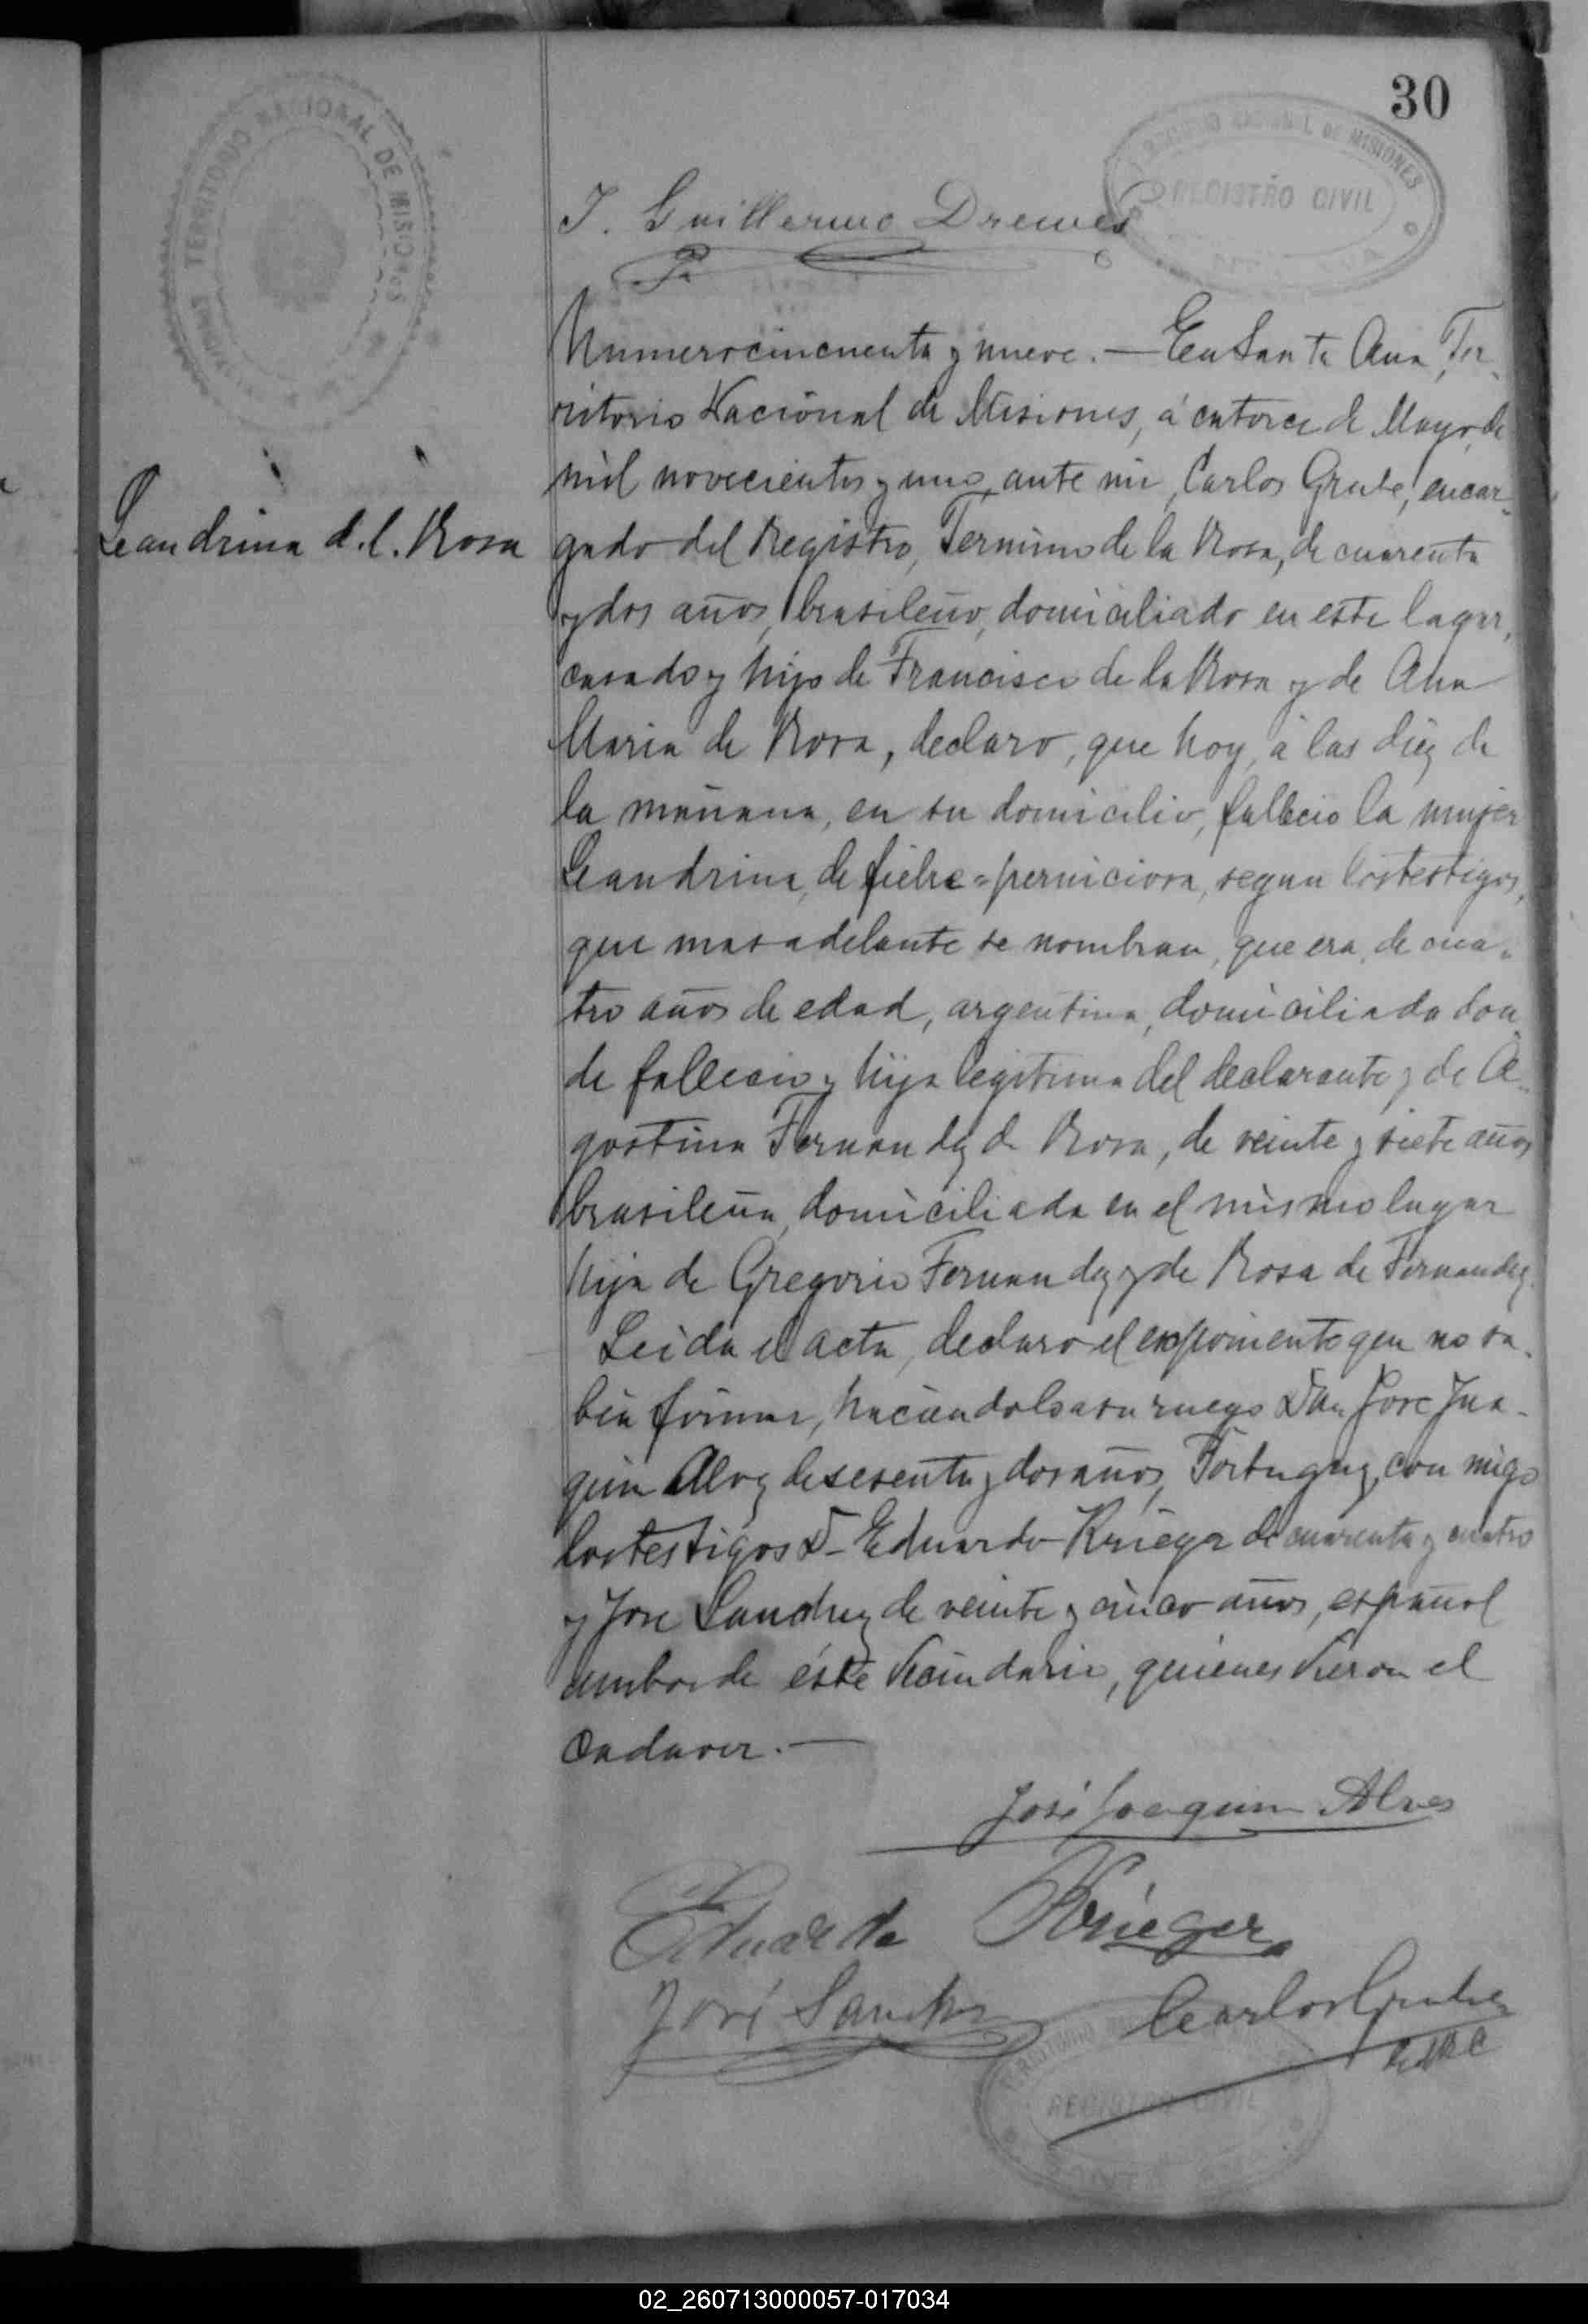 30
TERRITORIO NACIONAL DE MISIONES
REGISTRO CIVIL
J. Guillermo Drewes
Numero cincuenta y nueve. — En Santa Ana, Ter-
ritorio Nacional de Misiones, á catorce de Mayo, de
mil novecientos y uno, ante mi, Carlos Grube, encar-
Leandrina d. l. Rosa
gado del Registro, Fermino de la Rosa, de cuarenta
y dos años, brasileño, domiciliado en este lugar,
casado y hijo de Francisco de la Rosa y de Ana
Maria de Rosa, declaro, que hoy, á las diez de
la mañana, en su domicilio, fallecio la mujer
Leandrina, de fiebre=perniciosa, segun los testigos,
que mas adelante se nombran, que era, de cua-
tro años de edad, argentina, domiciliada don-
de fallecio y hija legitima del declarante y de A-
gostina Fernandez de Rosa, de veinte y siete años
brasileña, domiciliada en el mismo lugar
hija de Gregorio Fernandez y de Rosa de Fernandez.
Leida el acta, declaro el exponente que no sa-
bia firmar, haciendolo a su ruego Don Jose Jua-
quin Alvez de sesenta y dos años, Portuguez, con migo
los testigos D- Eduardo Krieger de cuarenta y cuatro
y Jose Sanchez de veinte y cinco años, español
ambos de éste Vecindario, quienes vieron el
cadaver. —
José Joaquim Alves
Eduardo Krieger
José Sanchez
Carlos Grube
REGISTRO CIVIL
02_260713000057-017034